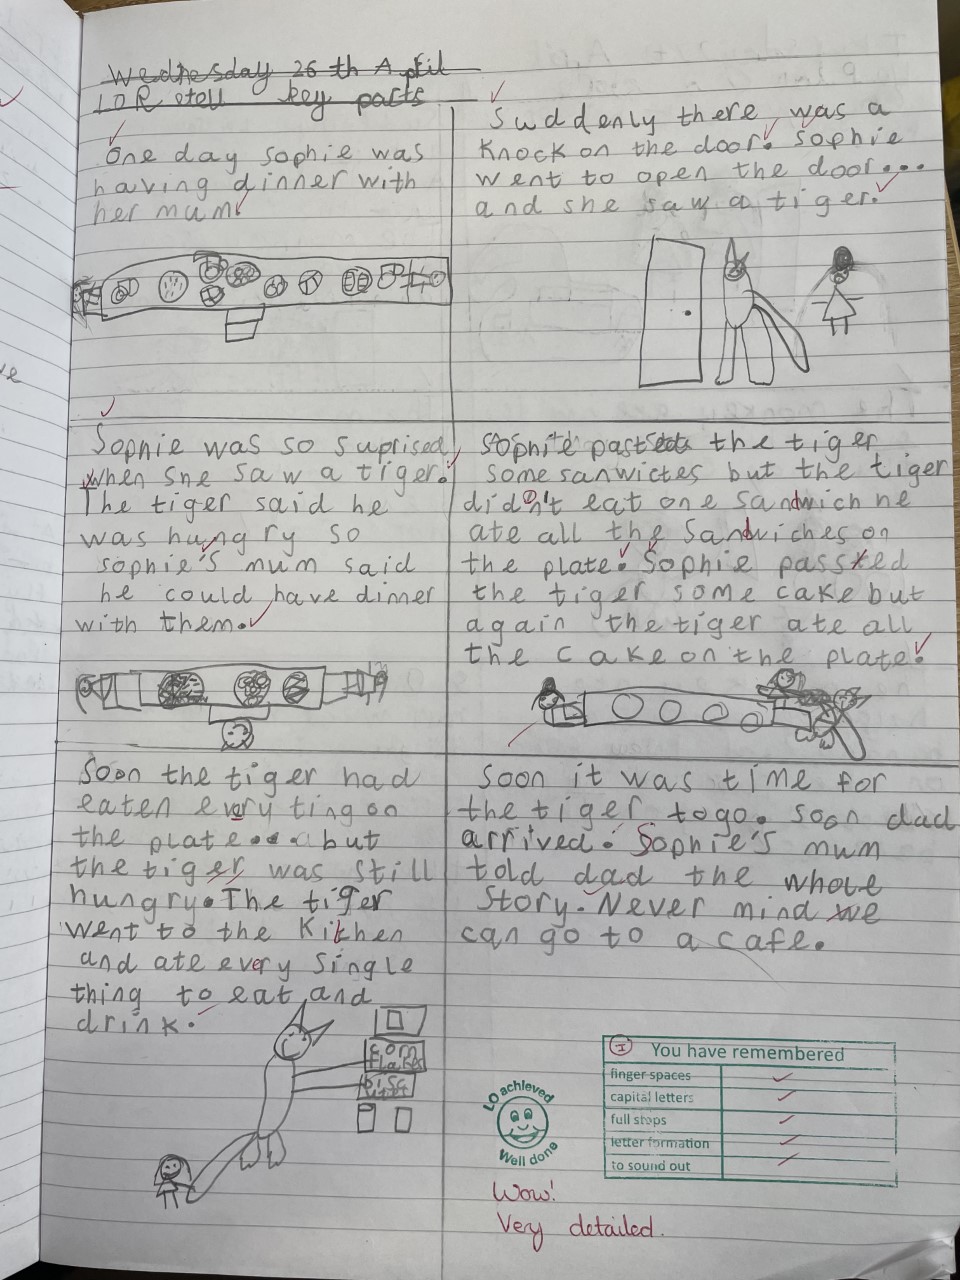 Wednesday 26th April
LO Retell key parts
One day Sophie was
having dinner with
her mum.
Suddenly there was a
Knock on the door. Sophie
went to open the door...
and she saw a tiger.
Sophie was so suprised
when she saw a tiger.
The tiger said he
was hungry so
sophie's mum said
he could have dinner
with them.
Sophie passed the tiger
some sanwictes but the tiger
didn't eat one sandwich he
ate all the Sandwiches on
the plate. Sophie passed
the tiger some cake but
again the tiger ate all
the cake on the plate.
Soon the tiger had
eaten every ting on
the plate... but
the tiger was still
hungry. The tiger
went to the Kitchen
and ate every single
thing to eat and
drink.
corn
flakes
Soon it was time for
the tiger to go. soon dad
arrived. Sophie's mum
told dad the whole
Story. Never mind we
can go to a cafe.
LO achieved
Well done
I You have remembered
finger spaces
capital letters
full stops
letter formation
to sound out
Wow!
Very detailed.